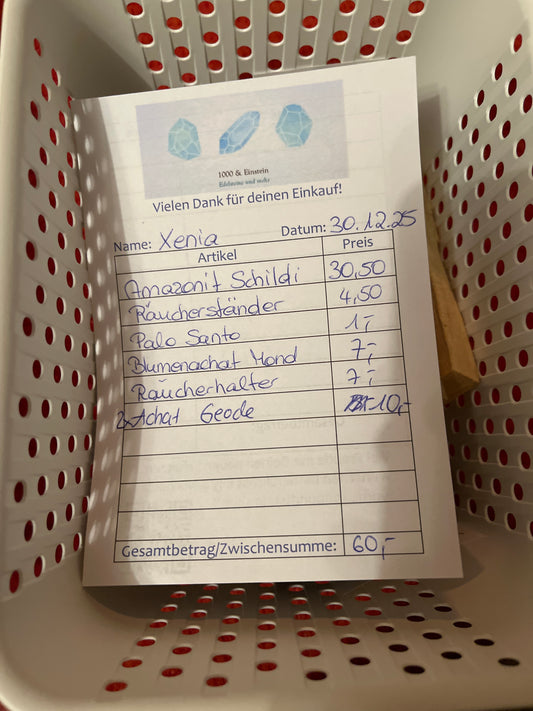 1000 & Einstein
Edelsteine und mehr
Vielen Dank für deinen Einkauf!
Name: Xenia Datum: 30.12.25
Artikel Preis
Amazonit Schildi 30,50
Räucherständer 4,50
Palo Santo 1,-
Blumenachat Mond 7,-
Räucherhalter 7,-
2x Achat Geode 10,-
Gesamtbetrag/Zwischensumme: 60,-